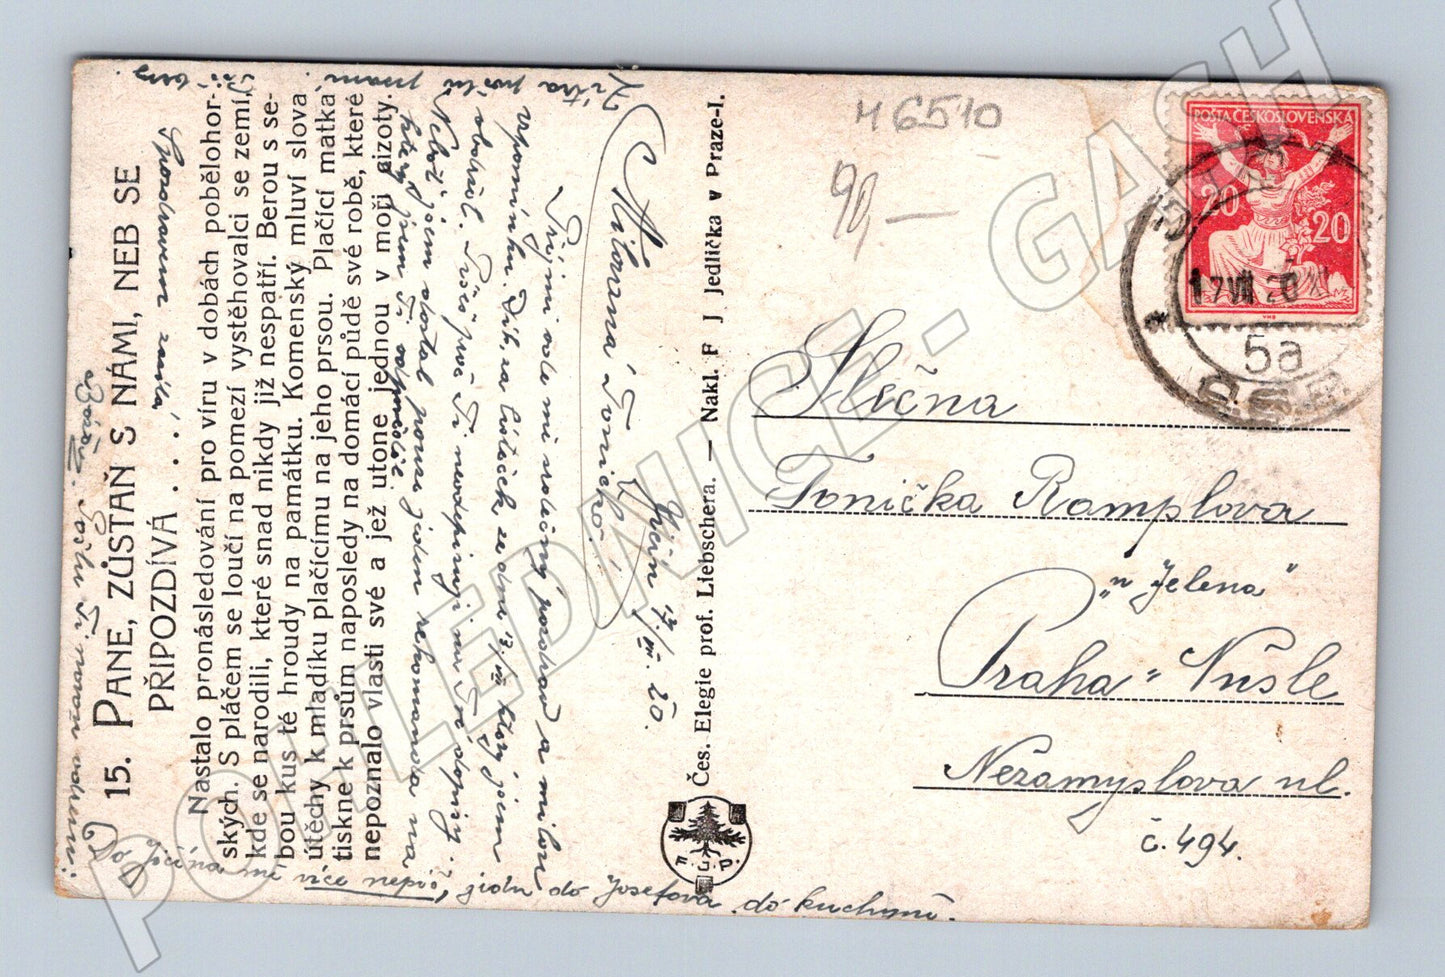 15. PANE, ZŮSTAŇ S NÁMI, NEB SE
PŘIPOZDÍVÁ . . . .
Nastalo pronásledování pro víru v dobách pobělohor-
ských. S pláčem se loučí na pomezí vystěhovalci se zemí,
kde se narodili, které snad nikdy již nespatří. Berou s se-
bou kus té hroudy na památku. Komenský mluví slova
útěchy k mladíku plačícímu na jeho prsou. Plačící matka
tiskne k prsům naposledy na domácí půdě své robě, které
nepoznalo vlasti své a jež utone jednou v moři cizoty.
Milovaná Toničko!
Jičín 17/VII. 20.
Přijmi ode mě srdečný pozdrav a milou
vzpomínku. Dík za lísteček ze dne 13/VII který jsem
obdržel.
Neboť jsem dostal pouze jeden rekomando na
který jsem Ti odpověděl
Do Jičína mi více nepiš, jedu do Josefova do kuchyně.
Čes. Elegie prof. Liebschera. — Nakl. F J Jedlička v Praze-I.
F. J. P.
M 6510
90,—
POŠTA ČESKOSLOVENSKÁ
20
20
17 VII 20
5a
Slečna
Tonička Ramplova
"u Jelena"
Praha - Nusle
Nezamyslova ul.
č. 494.
POHLEDNICE - GASH